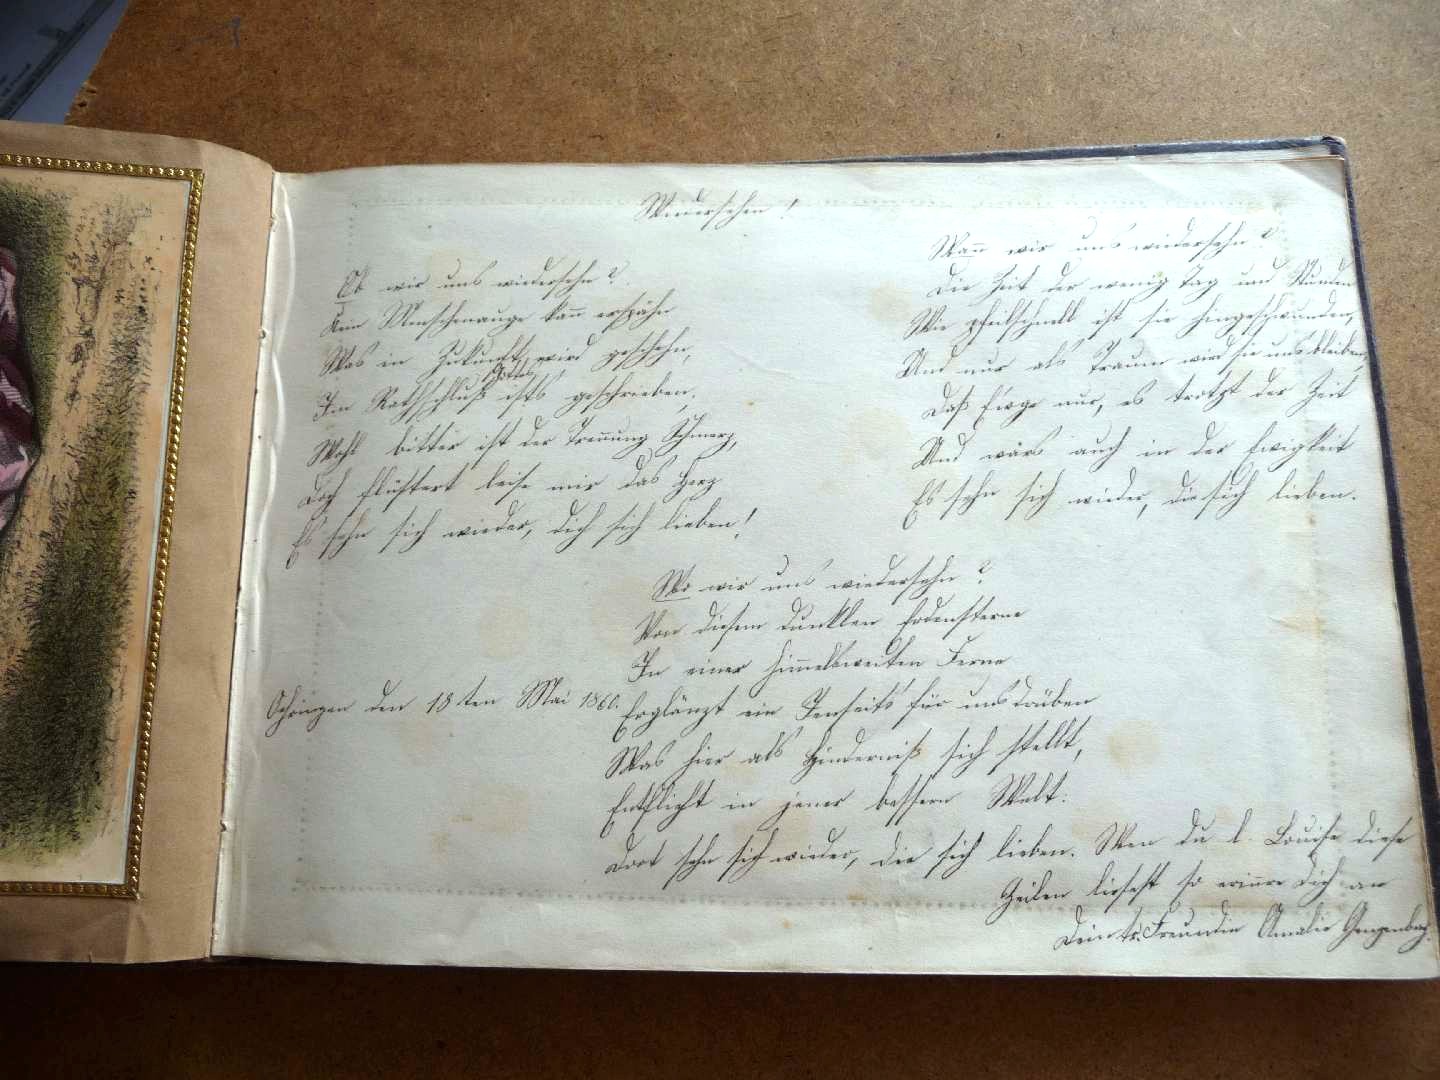 Wiedersehen!
Ob wir uns wiedersehn?
Kein Menschenauge kann erspähn
Was in Zukunft wird geschehn,
Im Rathschluß Gottes ists geschrieben,
Wohl bitter ist der Trennung Schmerz,
Doch flüstert leise mir das Herz
Es sehn sich wieder, dich sich lieben!
Wann wir uns wiedersehn?
Die Zeit der wenig Tag und Stunden
Wie pfeilschnell ist sie hingeschwunden,
Und nur als Traum wird sie uns bleiben,
Daß Ewge nur, es trotzt der Zeit
Und wärs auch in der Ewigkeit
Es sehn sich wieder, die sich lieben.
Wo wir uns wiedersehn?
Von diesem dunklen Erdensterne
In einer himmelsweiten Ferne
Erglänzt ein Jenseits für uns drüben
Was hier als Hinderniß sich stellt,
Entflieht in jener bessern Welt:
Dort sehn sich wieder, die sich lieben.
Öhringen den 18ten Mai 1860.
Wen du l. Louise diese
Zeilen liesest so erinre Dich an
Dein tr. Freundin Amalie